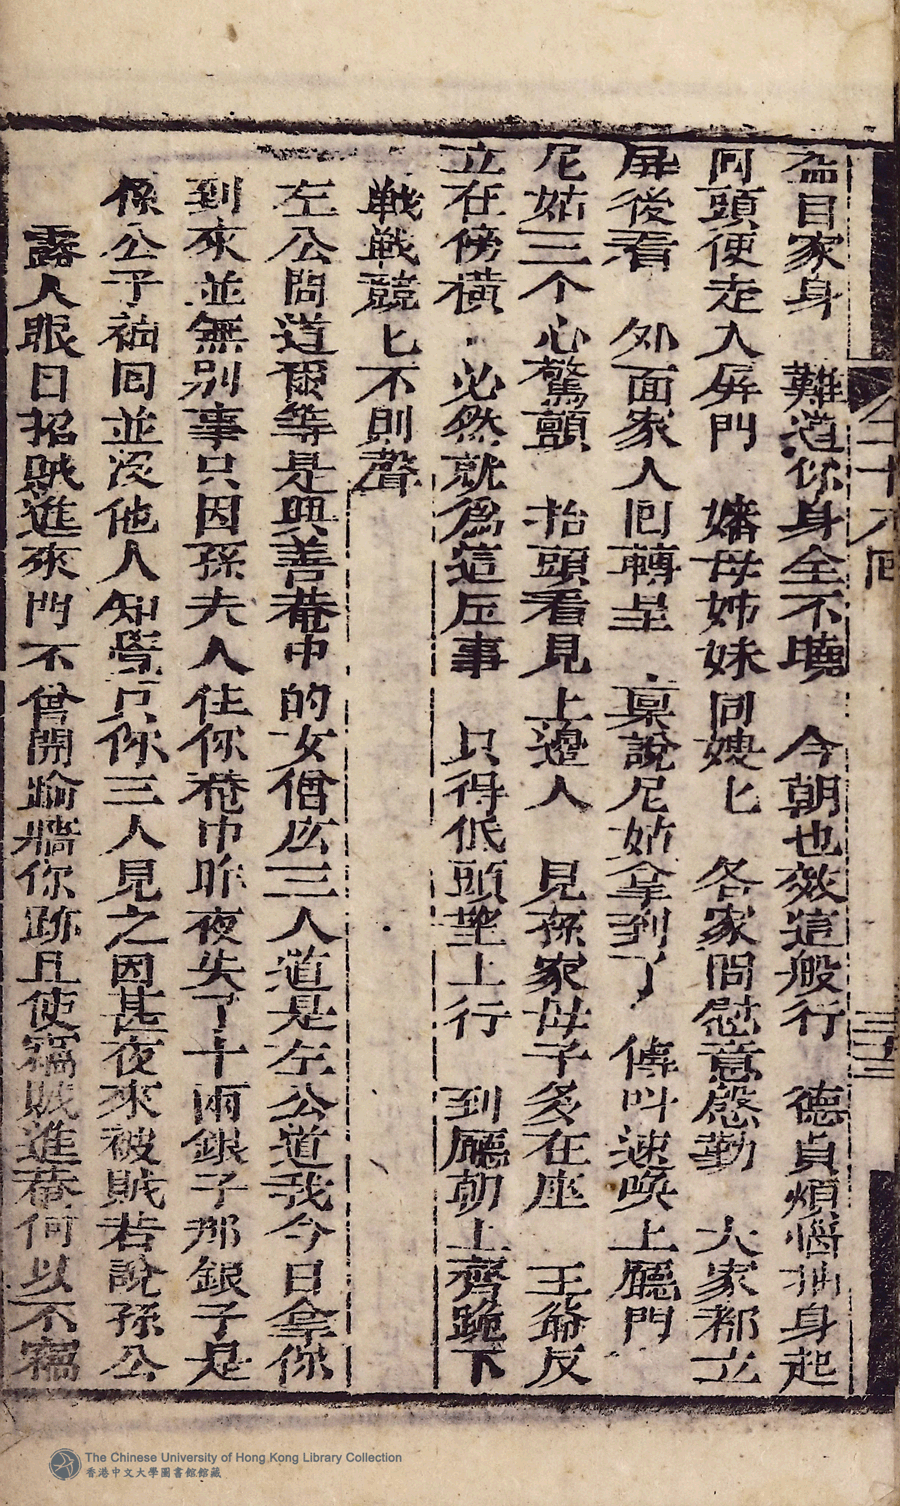 全十八回
三十二
盃目家身　難道你身全不曉　今朝也效這般行　德貞煩惱抽身起
囘頭便走入屏門　嬸母姊妹同㛐匕　各家問慰意慇勤　大家都立
屏後看　外面家人囘轉呈　稟說尼姑拿到了　傳呌速喚上廳門
尼姑三个心驚顫　抬頭看見上邊人　見孫家母子多在座　王爺反
立在傍橫　必然就為這庄事　只得低頭望上行　到廳朝上齊跪下
戰戰兢匕不則聲
左公問道爾等是興善菴中的女僧庅三人道是左公道我今日拿你
到來並無别事只因孫夫人住你菴中昨夜失了十兩銀子那銀子是
孫公子袖囘並没他人知覺只你三人見之因甚夜來被賊若說孫公
露人眼目招賊進來門不曾開踰牆你跡且使窩賊進菴何以不窩
The Chinese University of Hong Kong Library Collection
香港中文大學圖書館館藏